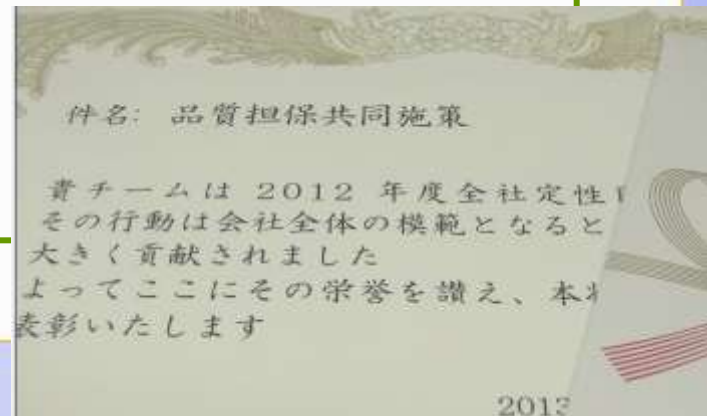 件名: 品質担保共同施策
貴チームは 2012 年度全社定性
その行動は会社全体の模範となると
大きく貢献されました
よってここにその栄誉を讃え、本
表彰いたします
2013